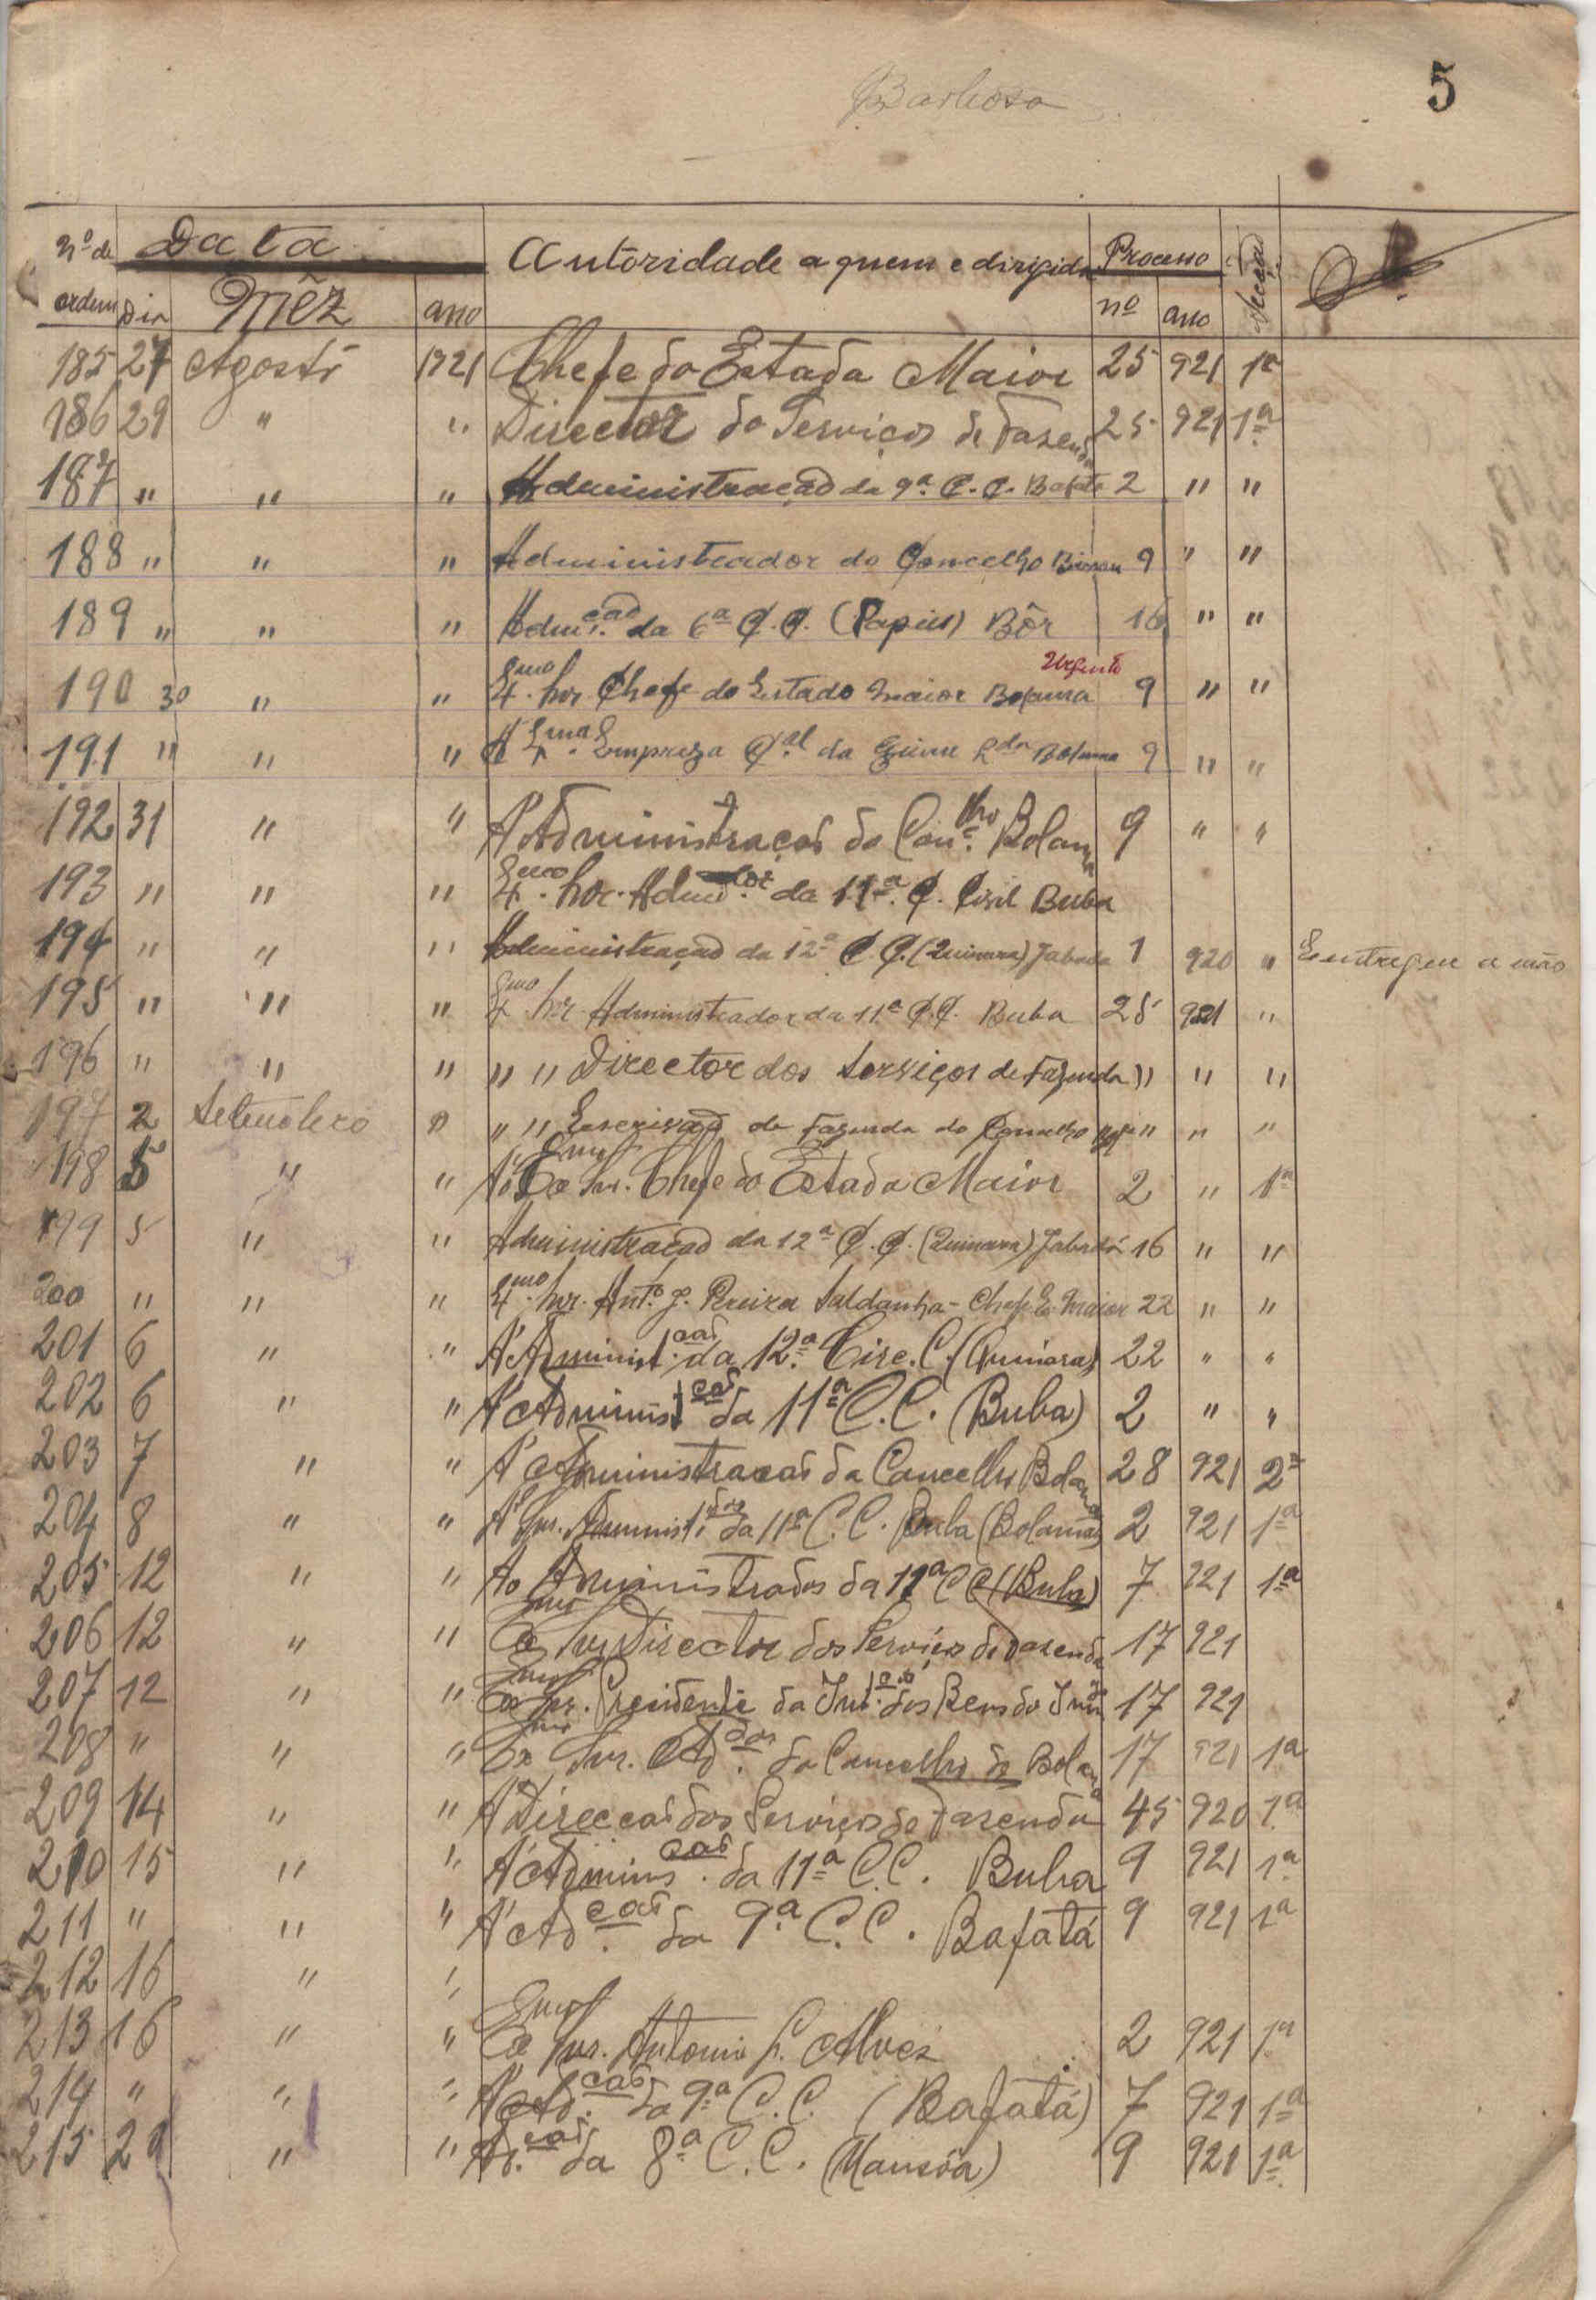 Barbosa
5
Nº de Data Autoridade a quem e dirigida Processo Secção
ordem Dia Mêz ano nº ano
185 27 Agosto 1921 Chefe do Estado Maior 25 921 1ª
186 29 " " Director do Serviços de Fazenda 25 921 1ª
187 " " " Administração da 9ª C. C. Bafatá 2 " "
188 " " " Administrador do Concelho Bissau 9 " "
189 " " " Adm.ção da 6ª C. C. (Papeis) Bôr 16 " "
Urgente
190 30 " " Exmo Snr. Chefe do Estado Maior Bolama 9 " "
191 " " " A Exma Empreza C.al da Guiné L.da Bolama 9 " "
192 31 " " A' Administração do Con.lho Bolama 9 " "
193 " " " Exmo Snr. Adm.dor da 11ª C. Civil Buba
194 " " " Administração da 12ª C. C. (Quinara) Jabada 1 920 " Entregue a mão
195 " " " Exmo Snr. Administrador da 11ª C.C. Buba 25 921 "
196 " " " " " Director dos Serviços de Fazenda " " "
197 2 Setembro " " " Escrivão de Fazenda do Concelho " " "
198 5 " " Ao Exmo Snr. Chefe do Estado Maior 2 " 1ª
199 5 " " Administração da 12ª C. C. (Quinara) Jabadá 16 " "
200 " " " Exmo Snr. Antº J. Pereira Saldanha - Chefe E. Maior 22 " "
201 6 " " A' Administ.cão da 12ª Circ. C. (Quinara) 22 " "
202 6 " " A' Administ.cão da 11ª C. C. (Buba) 2 " "
203 7 " " A' Administracão da Concelho Bolama 28 921 2ª
204 8 " " Ao Snr. Administ.dor da 11ª C. C. Buba (Bolama) 2 921 1ª
205 12 " " Ao Administrador da 11ª C C (Buba) 7 921 1ª
206 12 " " Exmo Snr Director dos Serviços de Fazenda 17 921
207 12 " " Exmo Snr. Presidente da dos Bens do 17 921
208 " " " Exmo Snr. Ad.dor do Concelho de Bolama 17 921 1ª
209 14 " " A' Direccão dos Serviços de Fazenda 45 920 1ª
210 15 " " A' Adminis.cão da 11ª C.C. Buba 9 921 1ª
211 " " " A' Ad.cão da 9ª C.C. Bafatá 9 921 1ª
212 16 " "
213 16 " " Exmo Snr. Antonio S. Alves 2 921 1ª
214 " " " A' Ad.cão da 9ª C.C. (Bafatá) 7 921 1ª
215 29 " " Ad.cão da 8ª C.C. (Mansôa) 9 921 1ª